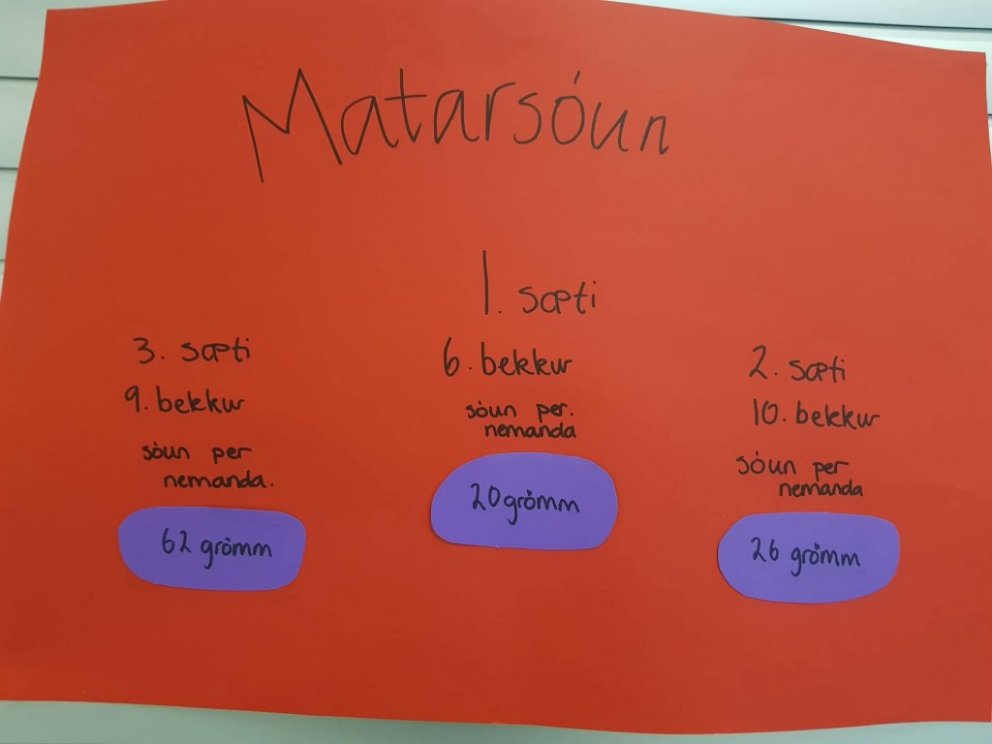 Matarsóun
1. sæti
6. bekkur
sóun per.
nemanda
20 grömm
3. sæti
9. bekkur
sóun per
nemanda.
62 grömm
2. sæti
10. bekkur
sóun per
nemanda
26 grömm